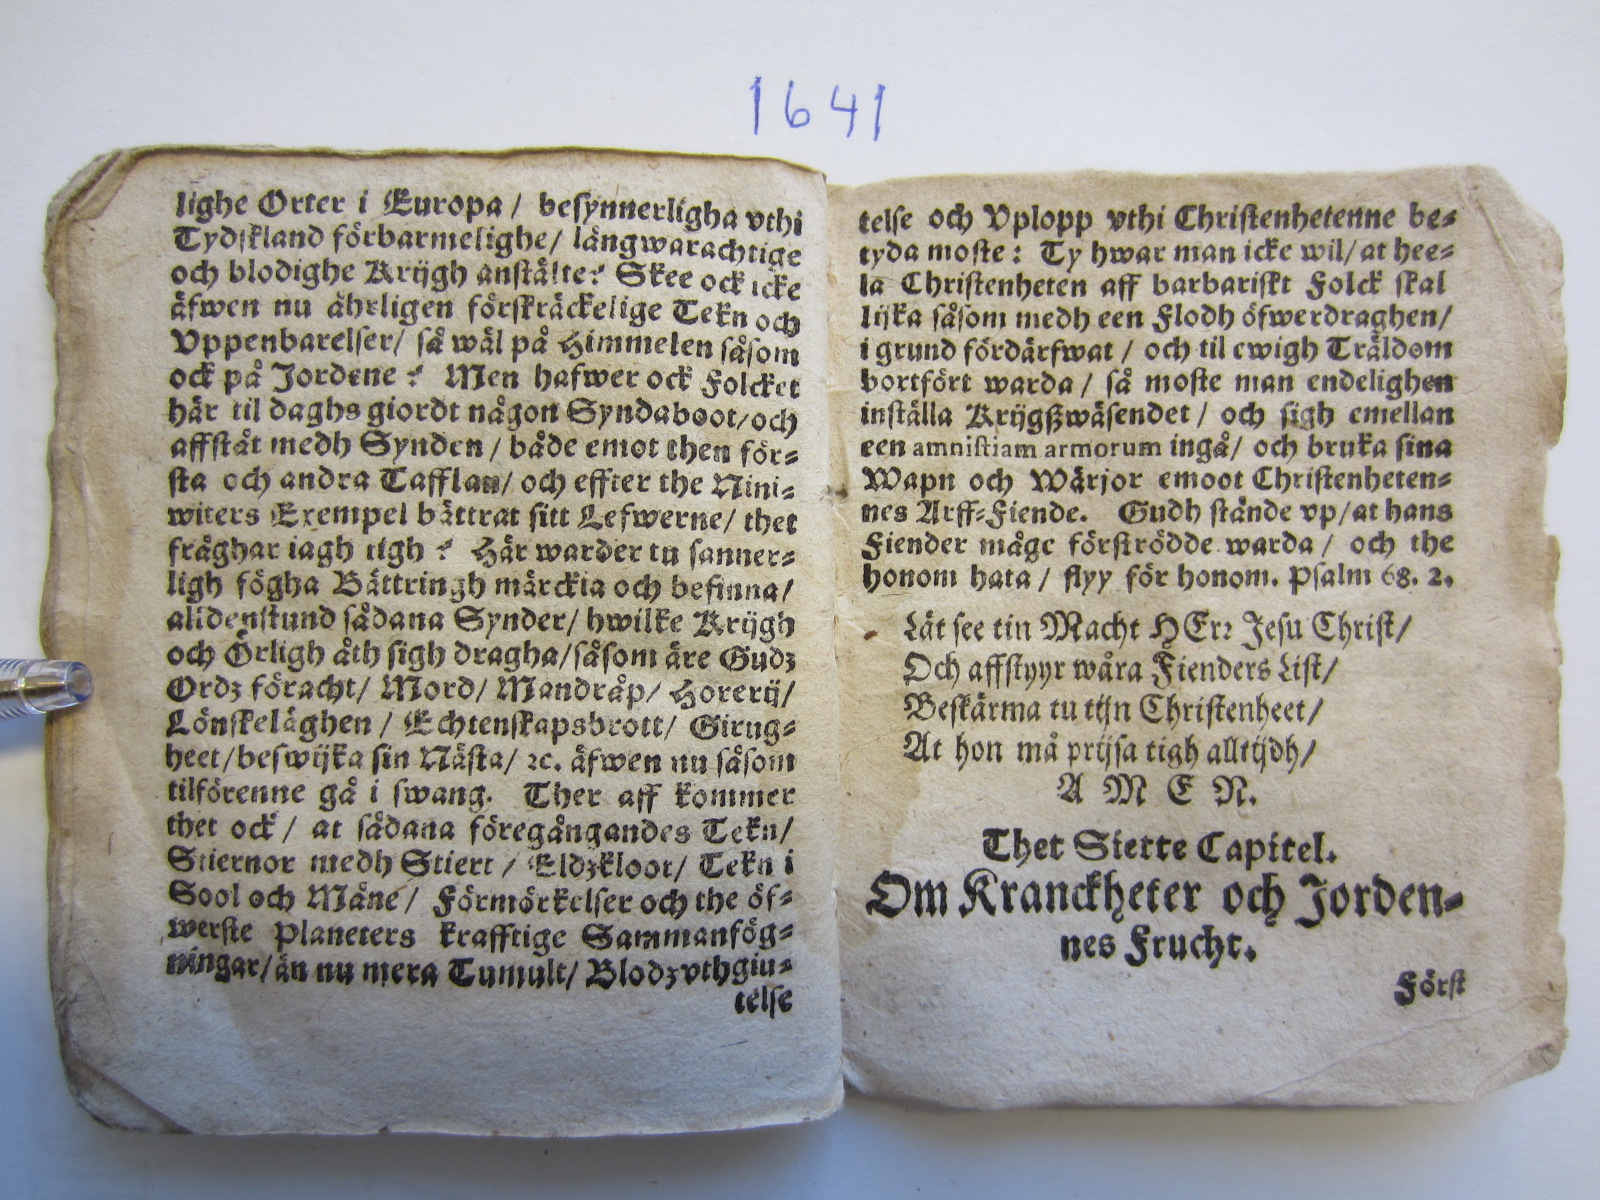 1641
lighe Orter i Europa / besynnerligha vthi
Tydskland förbarmelighe / långwarachtige
och blodighe Krijgh anstälte? Skee ock icke
äfwen nu åhrligen förskräckelige Tekn och
Vppenbarelser / så wäl på Himmelen såsom
ock på Jordene? Men hafwer ock Folcket
här til daghs giordt någon Syndaboot / och
affståt medh Synden / både emot then för-
sta och andra Tafflan / och effter the Nini-
witers Exempel bättrat sitt Lefwerne / thet
fråghar iagh tigh? Här warder tu sanner-
ligh fögha Bättringh märckia och befinna /
alldenstund sådana Synder / hwilke Krijgh
och Örligh åth sigh dragha / såsom äre Gudz
Ordz föracht / Mord / Mandråp / Horerij /
Lönskeläghen / Echtenskapsbrott / Girug-
heet / beswijka sin Nästa / ꝛc. äfwen nu såsom
tilförenne gå i swang. Ther aff kommer
thet ock / at sådana föregångandes Tekn /
Stiernor medh Stiert / Eldzkloot / Tekn i
Sool och Måne / Förmörkelser och the öf-
werste Planeters krafftige Sammanfög-
ningar / än nu mera Tumult / Blodzvthgiu-
telse
telse och Vplopp vthi Christenhetenne be-
tyda moste: Ty hwar man icke wil / at hee-
la Christenheten aff barbariskt Folck skal
lijka såsom medh een Flodh öfwerdraghen /
i grund fördärfwat / och til ewigh Träldom
bortfört warda / så moste man endelighen
inställa Krijgßwäsendet / och sigh emellan
een amnistiam armorum ingå / och bruka sina
Wapn och Wärjor emoot Christenheten-
nes Arff-Fiende. Gudh stånde vp / at hans
Fiender måge förströdde warda / och the
honom hata / flyy för honom. Psalm 68. 2.
Lät see tin Macht HErꝛ Jesu Christ /
Och affstyyr wåra Fienders List /
Beskärma tu tijn Christenheet /
At hon må prijsa tigh alltijdh /
A M E N.
Thet Siette Capitel.
Om Kranckheter och Jorden-
nes Frucht.
Först